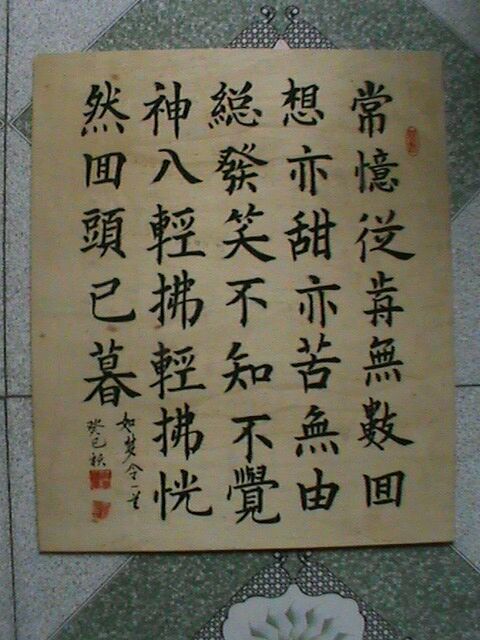 常憶従歬無數囬
想亦甜亦苦無由
総發笑不知不覺
神八輕拂輕拂恍
然囬頭已暮
如梦令一首
癸巳秋